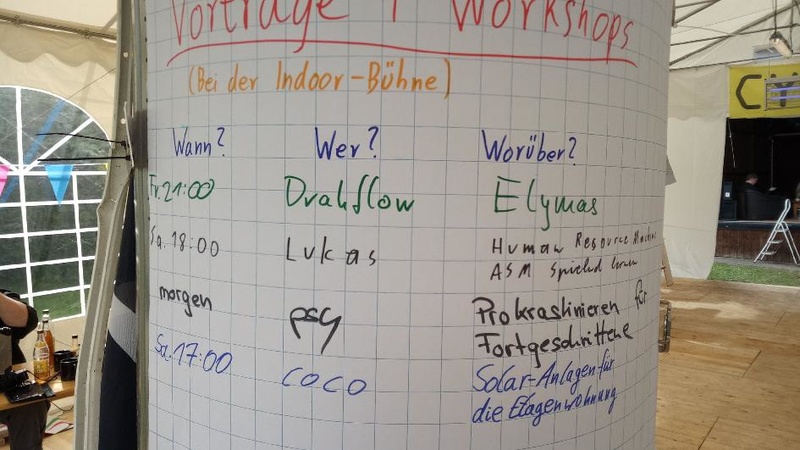 Vorträge / Workshops
(Bei der Indoor-Bühne)
Wann? Wer? Worüber?
Fr. 21:00 Drahflow Elymas
Sa. 18:00 Lukas Human Resource Machine
ASM spielend lernen
morgen psy Prokrastinieren für
Fortgeschrittene
Sa. 17:00 coco Solar-Anlagen für
die Etagenwohnung